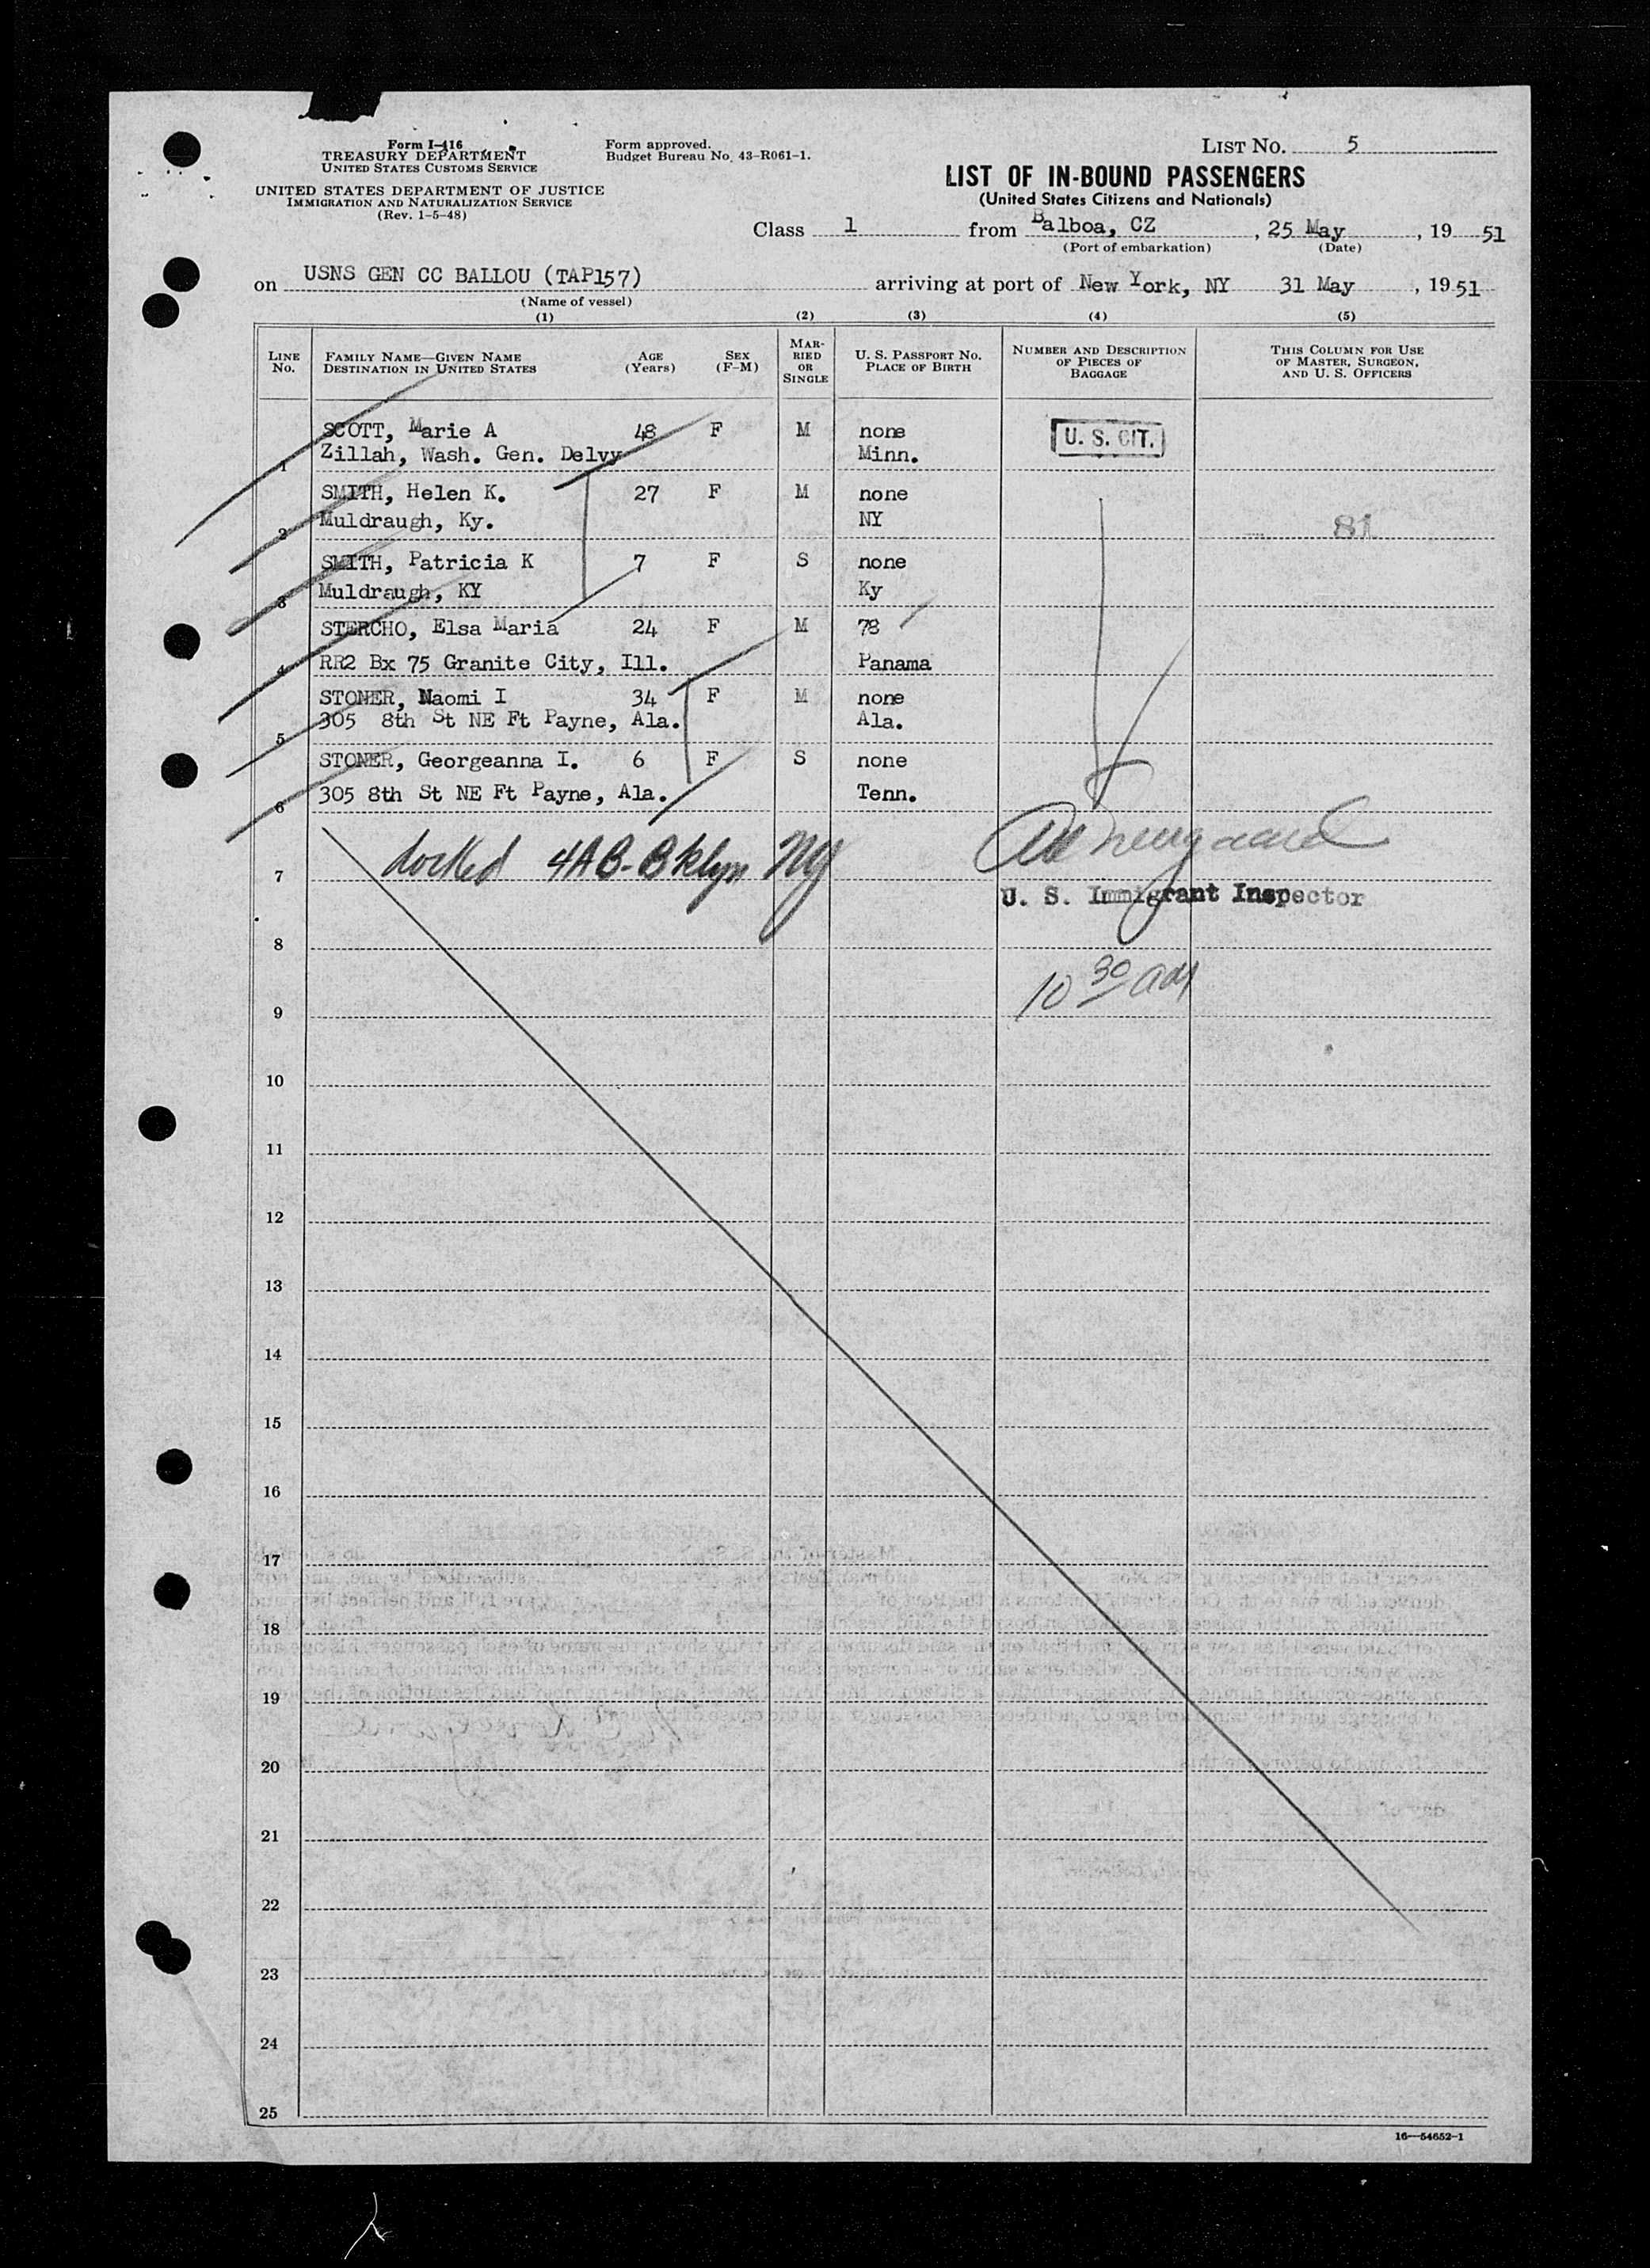 Form I-416
TREASURY DEPARTMENT
UNITED STATES CUSTOMS SERVICE
UNITED STATES DEPARTMENT OF JUSTICE
IMMIGRATION AND NATURALIZATION SERVICE
(Rev. 1-5-48)
Form approved.
Budget Bureau No. 43-R061-1.
LIST NO. 5
LIST OF IN-BOUND PASSENGERS
(United States Citizens and Nationals)
Class 1 from Balboa, CZ, 25 May, 19 51
(Port of embarkation) (Date)
on USNS GEN CC BALLOU (TAP157) arriving at port of New York, NY 31 May, 19 51
(Name of vessel)
(1) (2) (3) (4) (5)
LINE No. FAMILY NAME—GIVEN NAME DESTINATION IN UNITED STATES AGE (Years) SEX (F-M) MARRIED OR SINGLE U. S. PASSPORT NO. PLACE OF BIRTH NUMBER AND DESCRIPTION OF PIECES OF BAGGAGE THIS COLUMN FOR USE OF MASTER, SURGEON, AND U. S. OFFICERS
SCOTT, Marie A 48 F M none U. S. CIT.
1 Zillah, Wash. Gen. Delvy Minn.
SMITH, Helen K. 27 F M none
2 Muldraugh, Ky. NY 81
SMITH, Patricia K 7 F S none
3 Muldraugh, KY Ky
STERCHO, Elsa Maria 24 F M 78
4 RR2 Bx 75 Granite City, Ill. Panama
STONER, Naomi I 34 F M none
305 8th St NE Ft Payne, Ala. Ala.
5
STONER, Georgeanna I. 6 F S none
6 305 8th St NE Ft Payne, Ala. Tenn.
docked 4AB-Bklyn NY
7
U. S. Immigrant Inspector
8
10 30 AM
9
10
11
12
13
14
15
16
17
18
19
20
21
22
23
24
25
16—54652-1